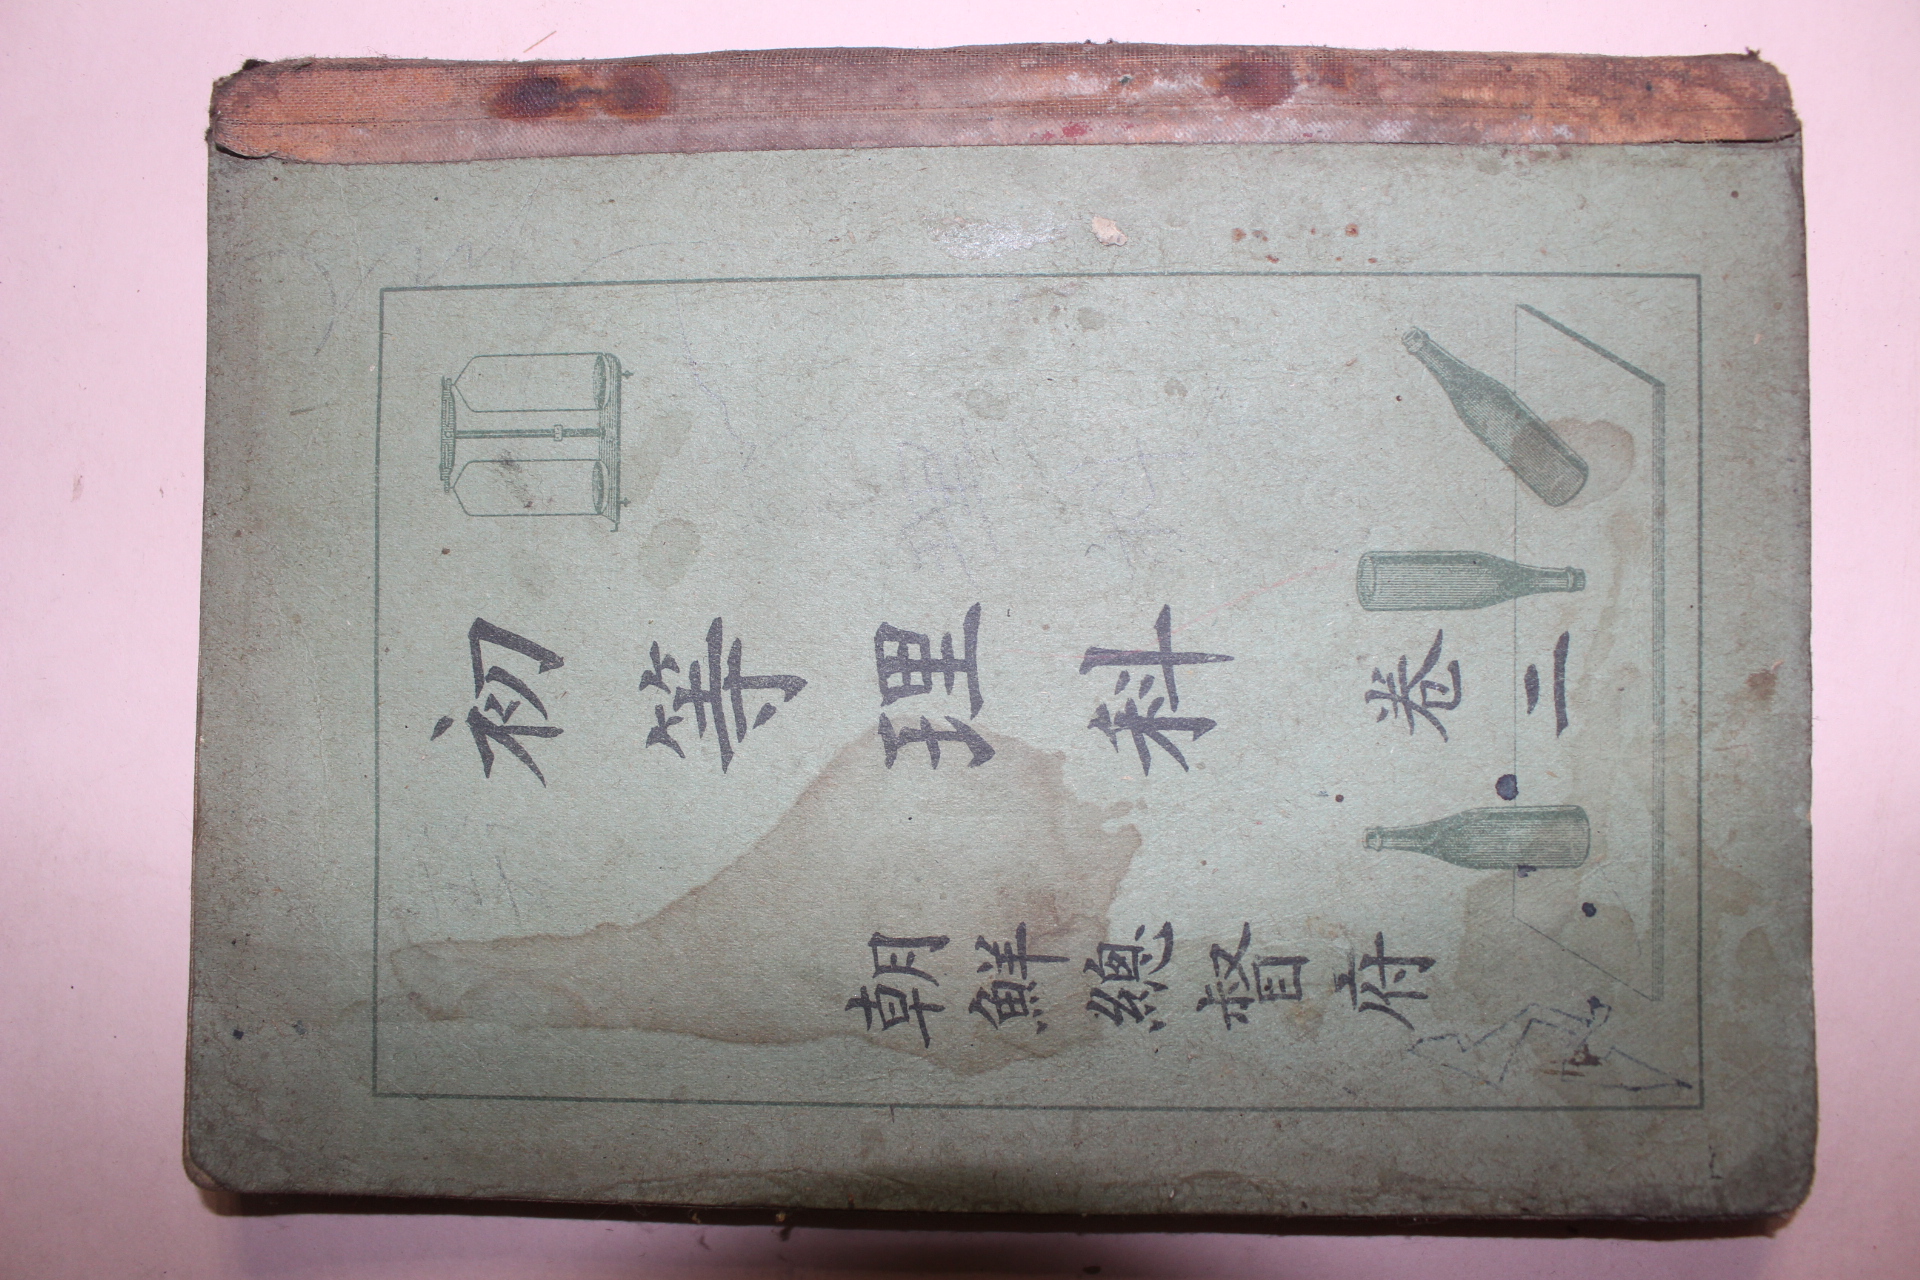 初等理科 卷二
朝鮮總督府